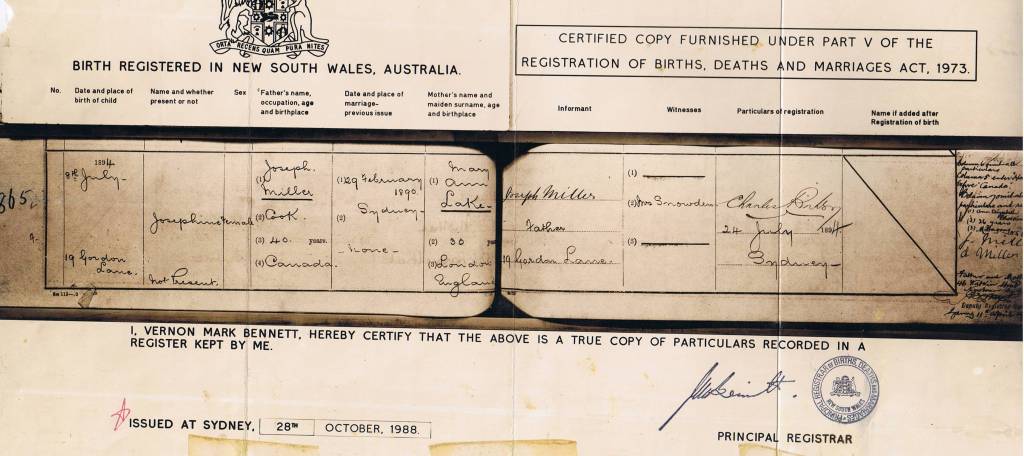 ORTA RECENS QUAM PURA NITES
BIRTH REGISTERED IN NEW SOUTH WALES, AUSTRALIA.
CERTIFIED COPY FURNISHED UNDER PART V OF THE
REGISTRATION OF BIRTHS, DEATHS AND MARRIAGES ACT, 1973.
No.
Date and place of
birth of child
Name and whether
present or not
Sex
Father's name,
occupation, age
and birthplace
Date and place of
marriage-
previous issue
Mother's name and
maiden surname, age
and birthplace
Informant
Witnesses
Particulars of registration
Name if added after
Registration of birth
1894
8th July-
19 Gordon
Lane.
Josephine
Not Present.
Female
(1) Joseph
Miller
(2) Cook
(3) 40. years.
(4) Canada.
(1) 29 February
1890.
(2) Sydney-
None-
(1) Mary
Ann
Lake-
(2) 30
(3) London
England
Joseph Miller
Father
19 Gordon Lane.
(1)
(2) Mrs Snowden
(3)
Charles
24 July 1894
Sydney-
365
Miller
Miller
I, VERNON MARK BENNETT, HEREBY CERTIFY THAT THE ABOVE IS A TRUE COPY OF PARTICULARS RECORDED IN A
REGISTER KEPT BY ME.
PRINCIPAL REGISTRAR OF BIRTHS, DEATHS AND MARRIAGES
NEW SOUTH WALES
ISSUED AT SYDNEY, 28TH OCTOBER, 1988.
PRINCIPAL REGISTRAR